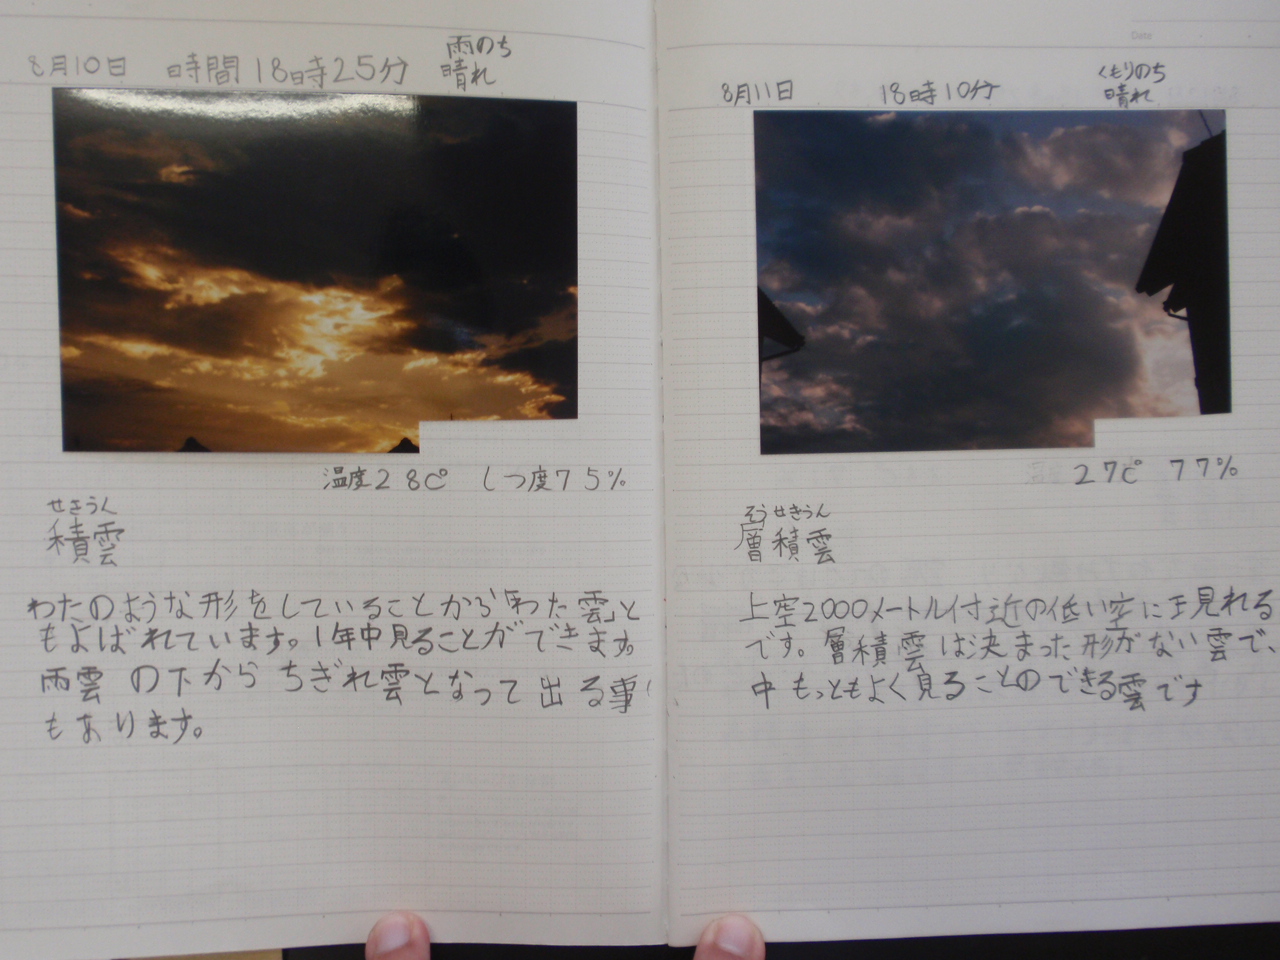 8月10日 時間18時25分
雨のち
晴れ
温度28℃ しつ度75%
せきうん
積雲
わたのような形をしていることから「わた雲」と
もよばれています。1年中見ることができます。
雨雲の下からちぎれ雲となって出る事
もあります。
Date
8月11日 18時10分
くもりのち
晴れ
27℃ 77%
そうせきうん
層積雲
上空2000メートル付近の低い空に見れる
です。層積雲は決まった形がない雲で、
中もっともよく見ることのできる雲です